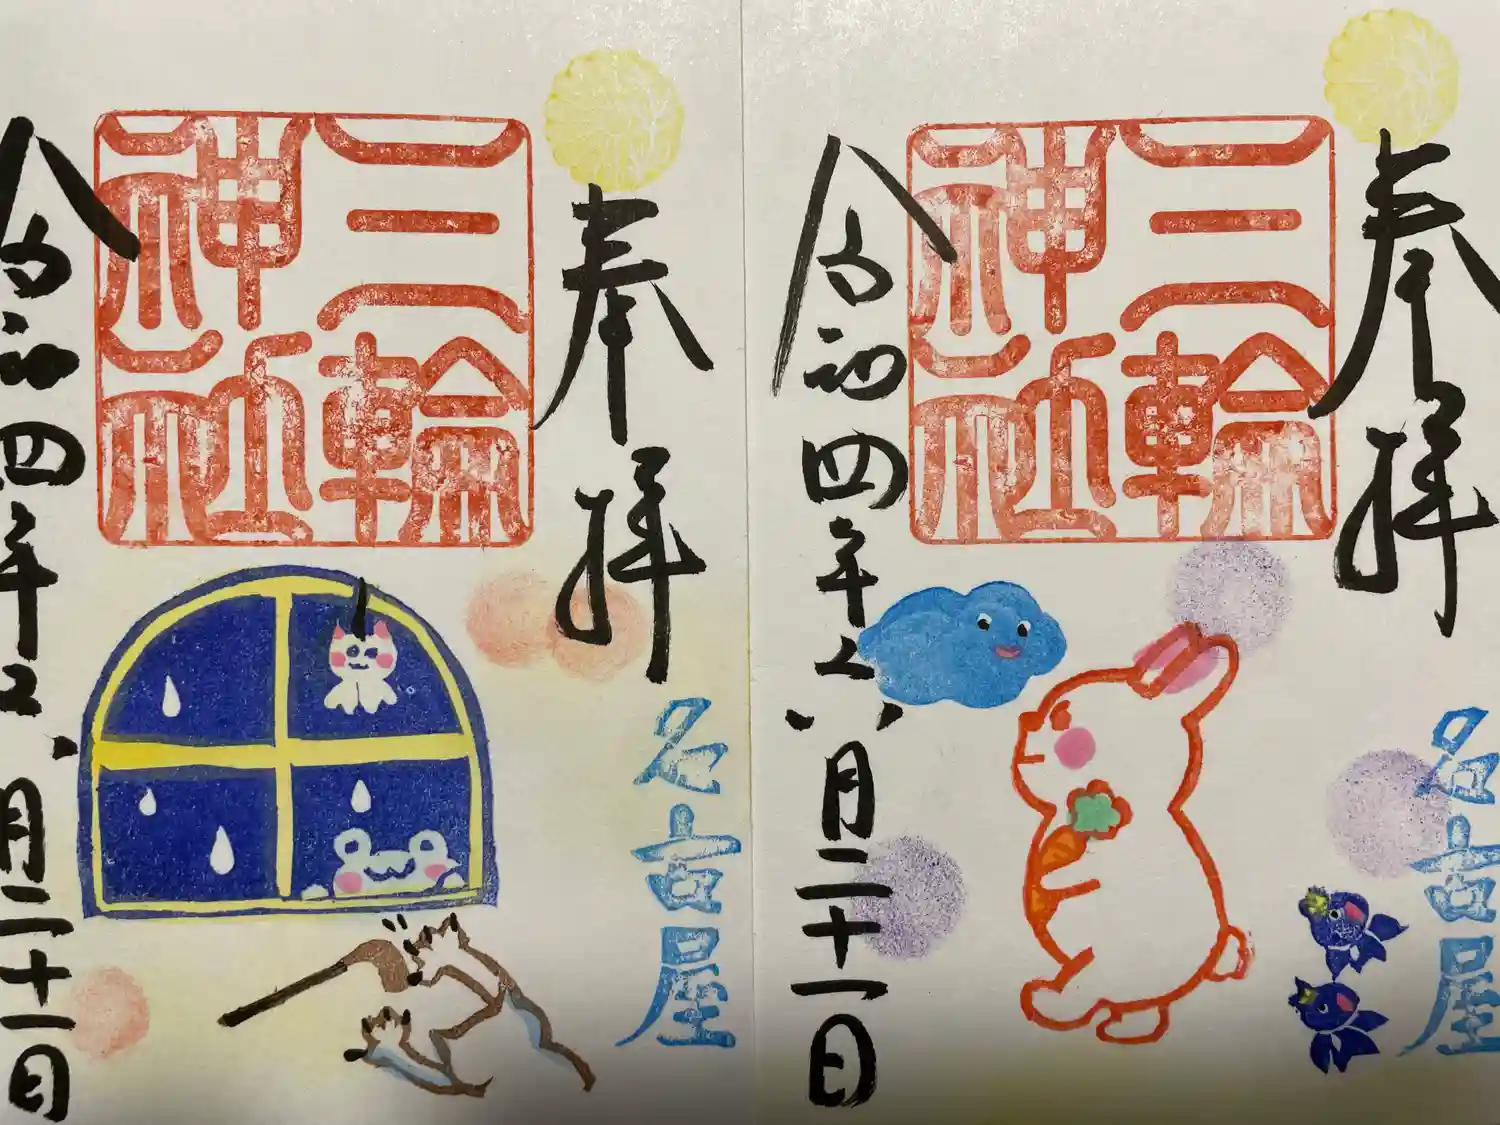 奉拝
三輪神社
名古屋
令和四年六月二十一日
奉拝
三輪神社
名古屋
令和四年六月二十一日